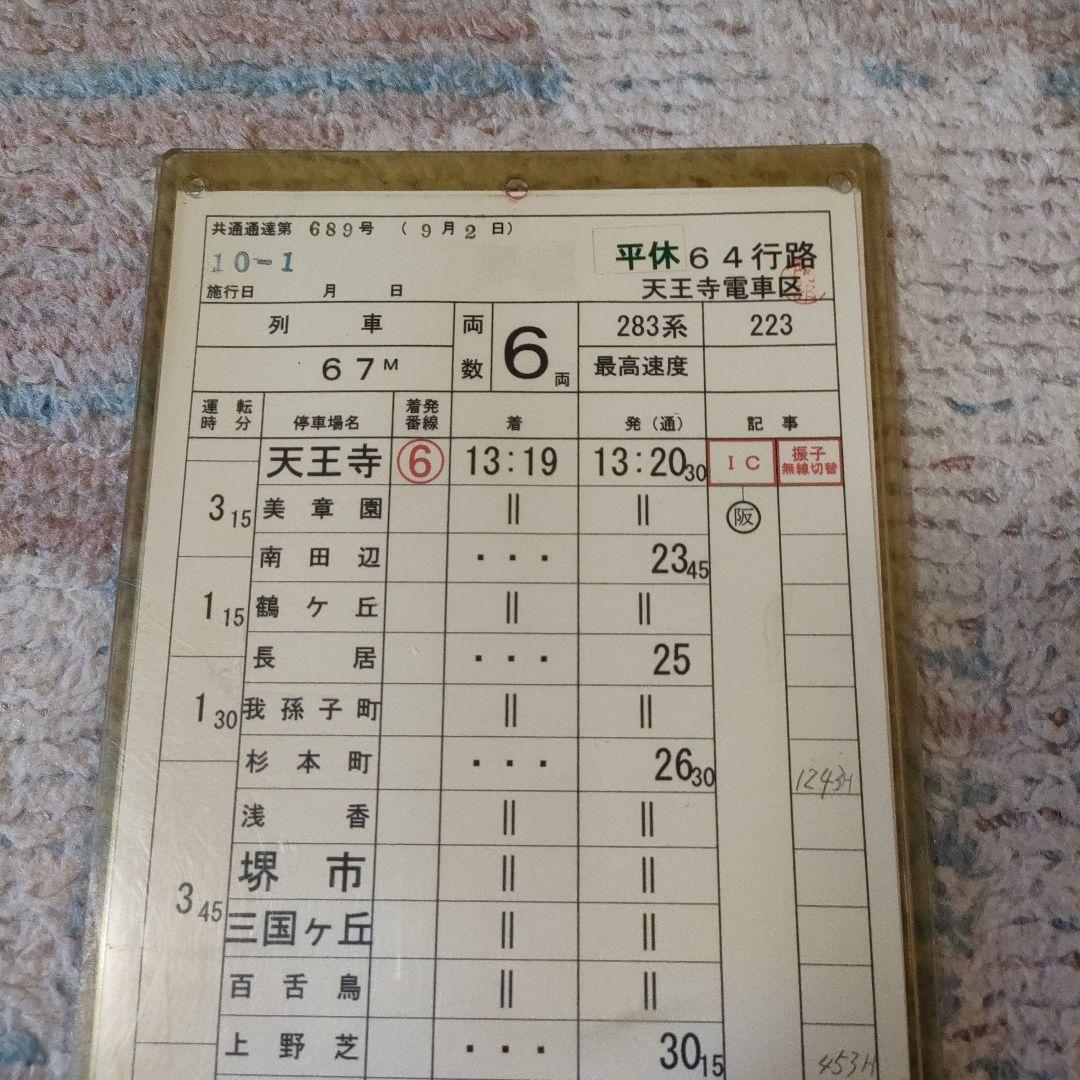 共通通達第 689号 （ 9月 2日）
10-1
平休64行路
施行日 月 日
天王寺電車区
列 車 両数 6両 283系 223
67M 最高速度
運転時分 停車場名 着発番線 着 発（通） 記 事
天王寺 ⑥ 13:19 13:20 30 IC 振子無線切替
3 15 美章園 || || 阪
南田辺 ・・・ 23 45
1 15 鶴ケ丘 || ||
長居 ・・・ 25
1 30 我孫子町 || ||
杉本町 ・・・ 26 30 1243H
浅香 || ||
堺市 || ||
3 45 三国ヶ丘 || ||
百舌鳥 || ||
上野芝 ・・・ 30 15 453H